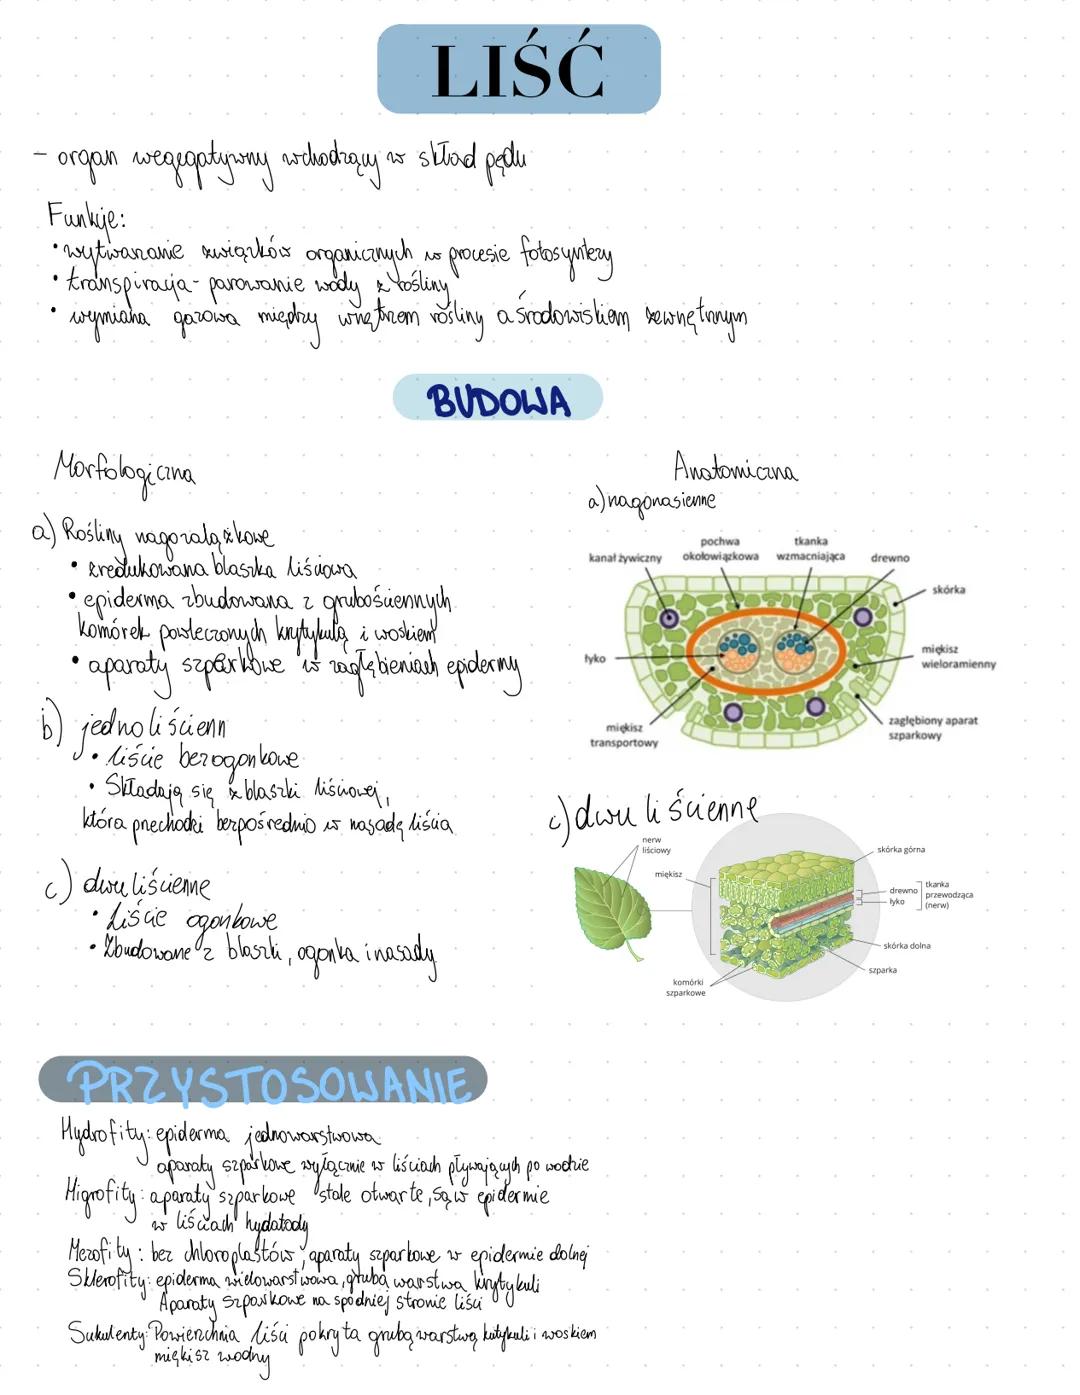 LIŚĆ
- organ wegegatywny wchodzący w skład pędu
Funkje:
• wytwarzanie związków organicznych w procesie fotosyntezy
• transpiracja - parowanie wody z rośliny
• wymiana gazowa między wnętrzem rośliny a środowiskiem zewnętrznym
BUDOWA
Morfologiczna
a) Rośliny nagozalążkowe
• zredukowana blaszka liściowa
• epiderma zbudowana z grubościennych
komórek powleczonych krytykulą i woskiem
• aparaty szparkowe w zagłębieniach epidermy
b) jednoliścienn
• liście bezogonkowe
• Składają się z blaszki liściowej,
która przechodzi bezpośrednio w nasadę liścia
c) dwuliścienne
• Liście ogonkowe
• Zbudowane z blaszki, ogonka i nasady
Anatomiczna
a) nagonasienne
kanał żywiczny
pochwa
okołowiązkowa
tkanka
wzmacniająca
drewno
skórka
łyko
miękisz
wieloramienny
miękisz
transportowy
zagłębiony aparat
szparkowy
c) dwuliścienne
nerw
liściowy
miękisz
skórka górna
drewno
łyko
tkanka
przewodząca
(nerw)
skórka dolna
szparka
komórki
szparkowe
PRZYSTOSOWANIE
Hydrofity: epiderma jednowarstwowa
aparaty szparkowe wyłącznie w liściach pływających po wodzie
Higrofity: aparaty szparkowe stale otwarte, są w epidermie
w liściach hydatody
Mezofity: bez chloroplastów, aparaty szparkowe w epidermie dolnej
Sklerofity: epiderma wielowarstwowa, gruba warstwa krytykuli
Aparaty szparkowe na spodniej stronie liści
Sukulenty: Powierzchnia liści pokryta grubą warstwą kutykuli i woskiem
miękisz wodny